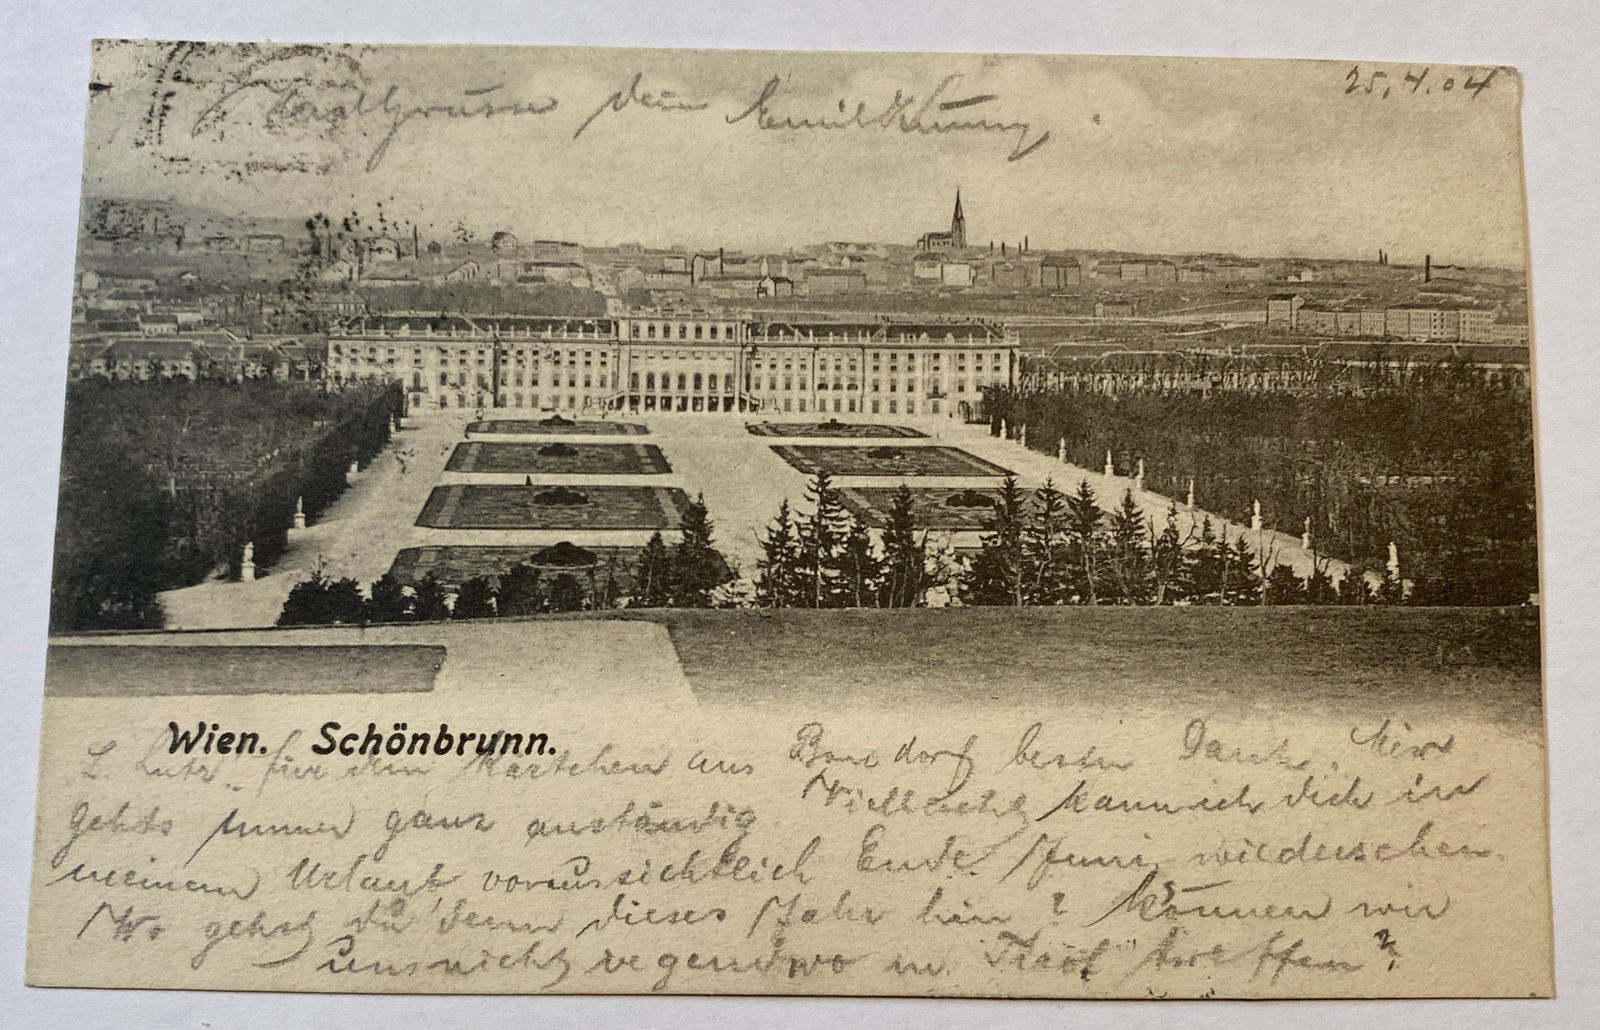 25.4.04
Grüsse dein Emil
Wien. Schönbrunn.
L. Lutz! für dein Kärtchen aus Bondorf besten Dank. Mir
gehts immer ganz anständig. Vielleicht kann ich dich in
meinem Urlaub voraussichtlich Ende Juni wiedersehen.
Wo gehst du denn dieses Jahr hin? Können wir
uns nicht irgendwo in Tirol treffen?